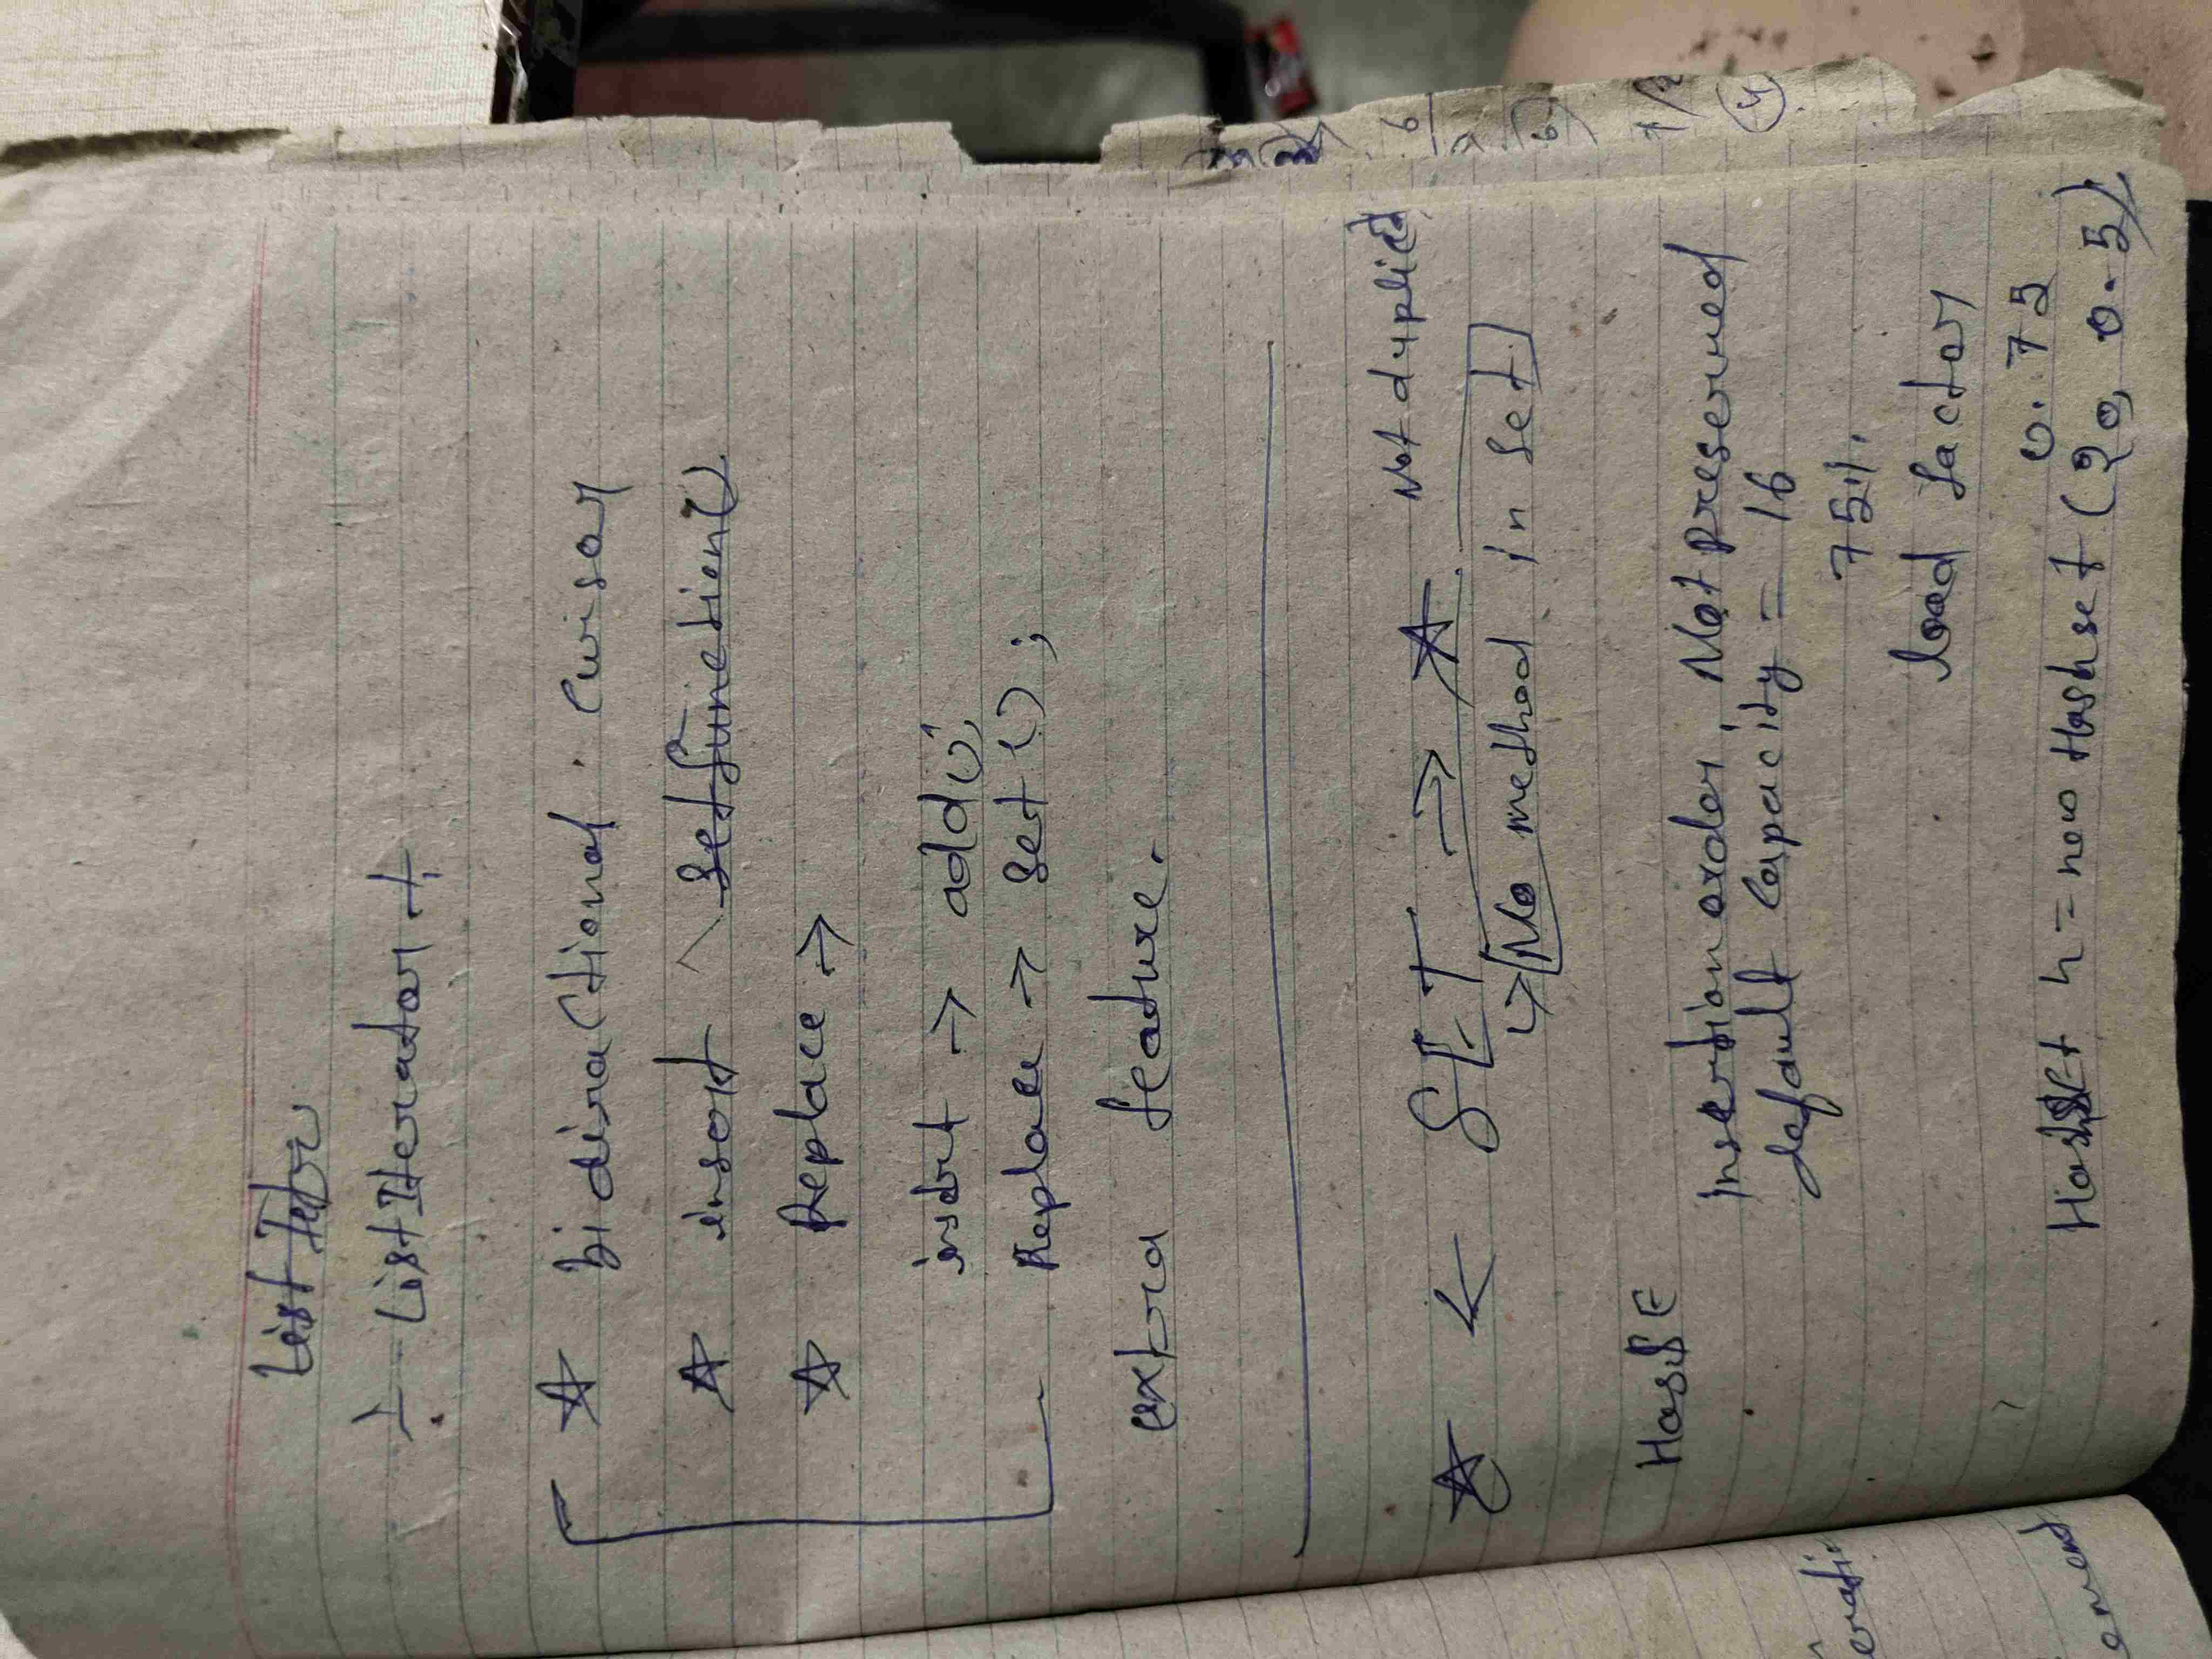 List Iter
÷ ListIterator +
☆ bidiractional cursor
☆ insert setfunction()
☆ Replace →
insert → add();
Replace → set();
extra feature.
☆ ← SET → ☆ Not duplicat
↳ No method in set.
HasSE
insertion order, Not preserved
default capacity = 16
75%.
load factor
0.75
HashSEt h = new Hashset (20, 0.5);
erati
ement